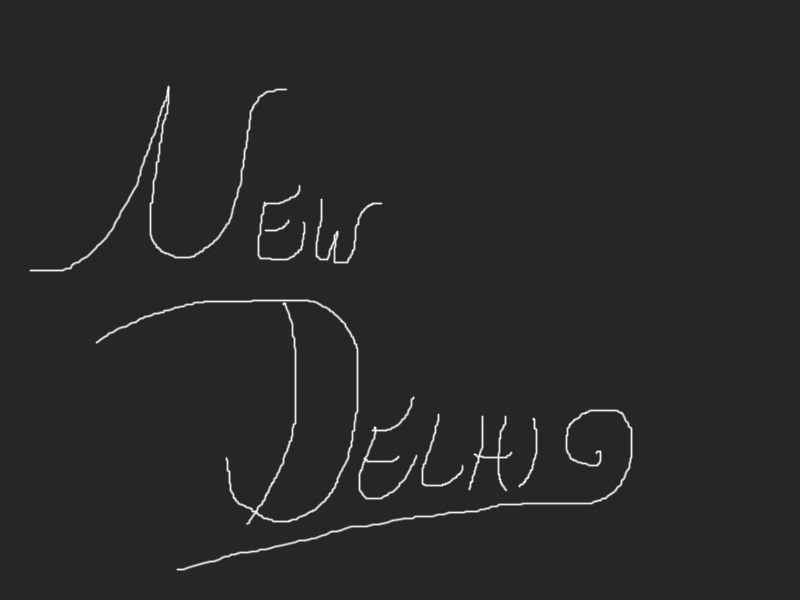 NEW
DELHI